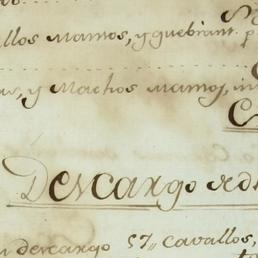 llos Mamos, y quebrant. p
y Machos Mamos, in
Descargo
descargo 57,, cavallos,